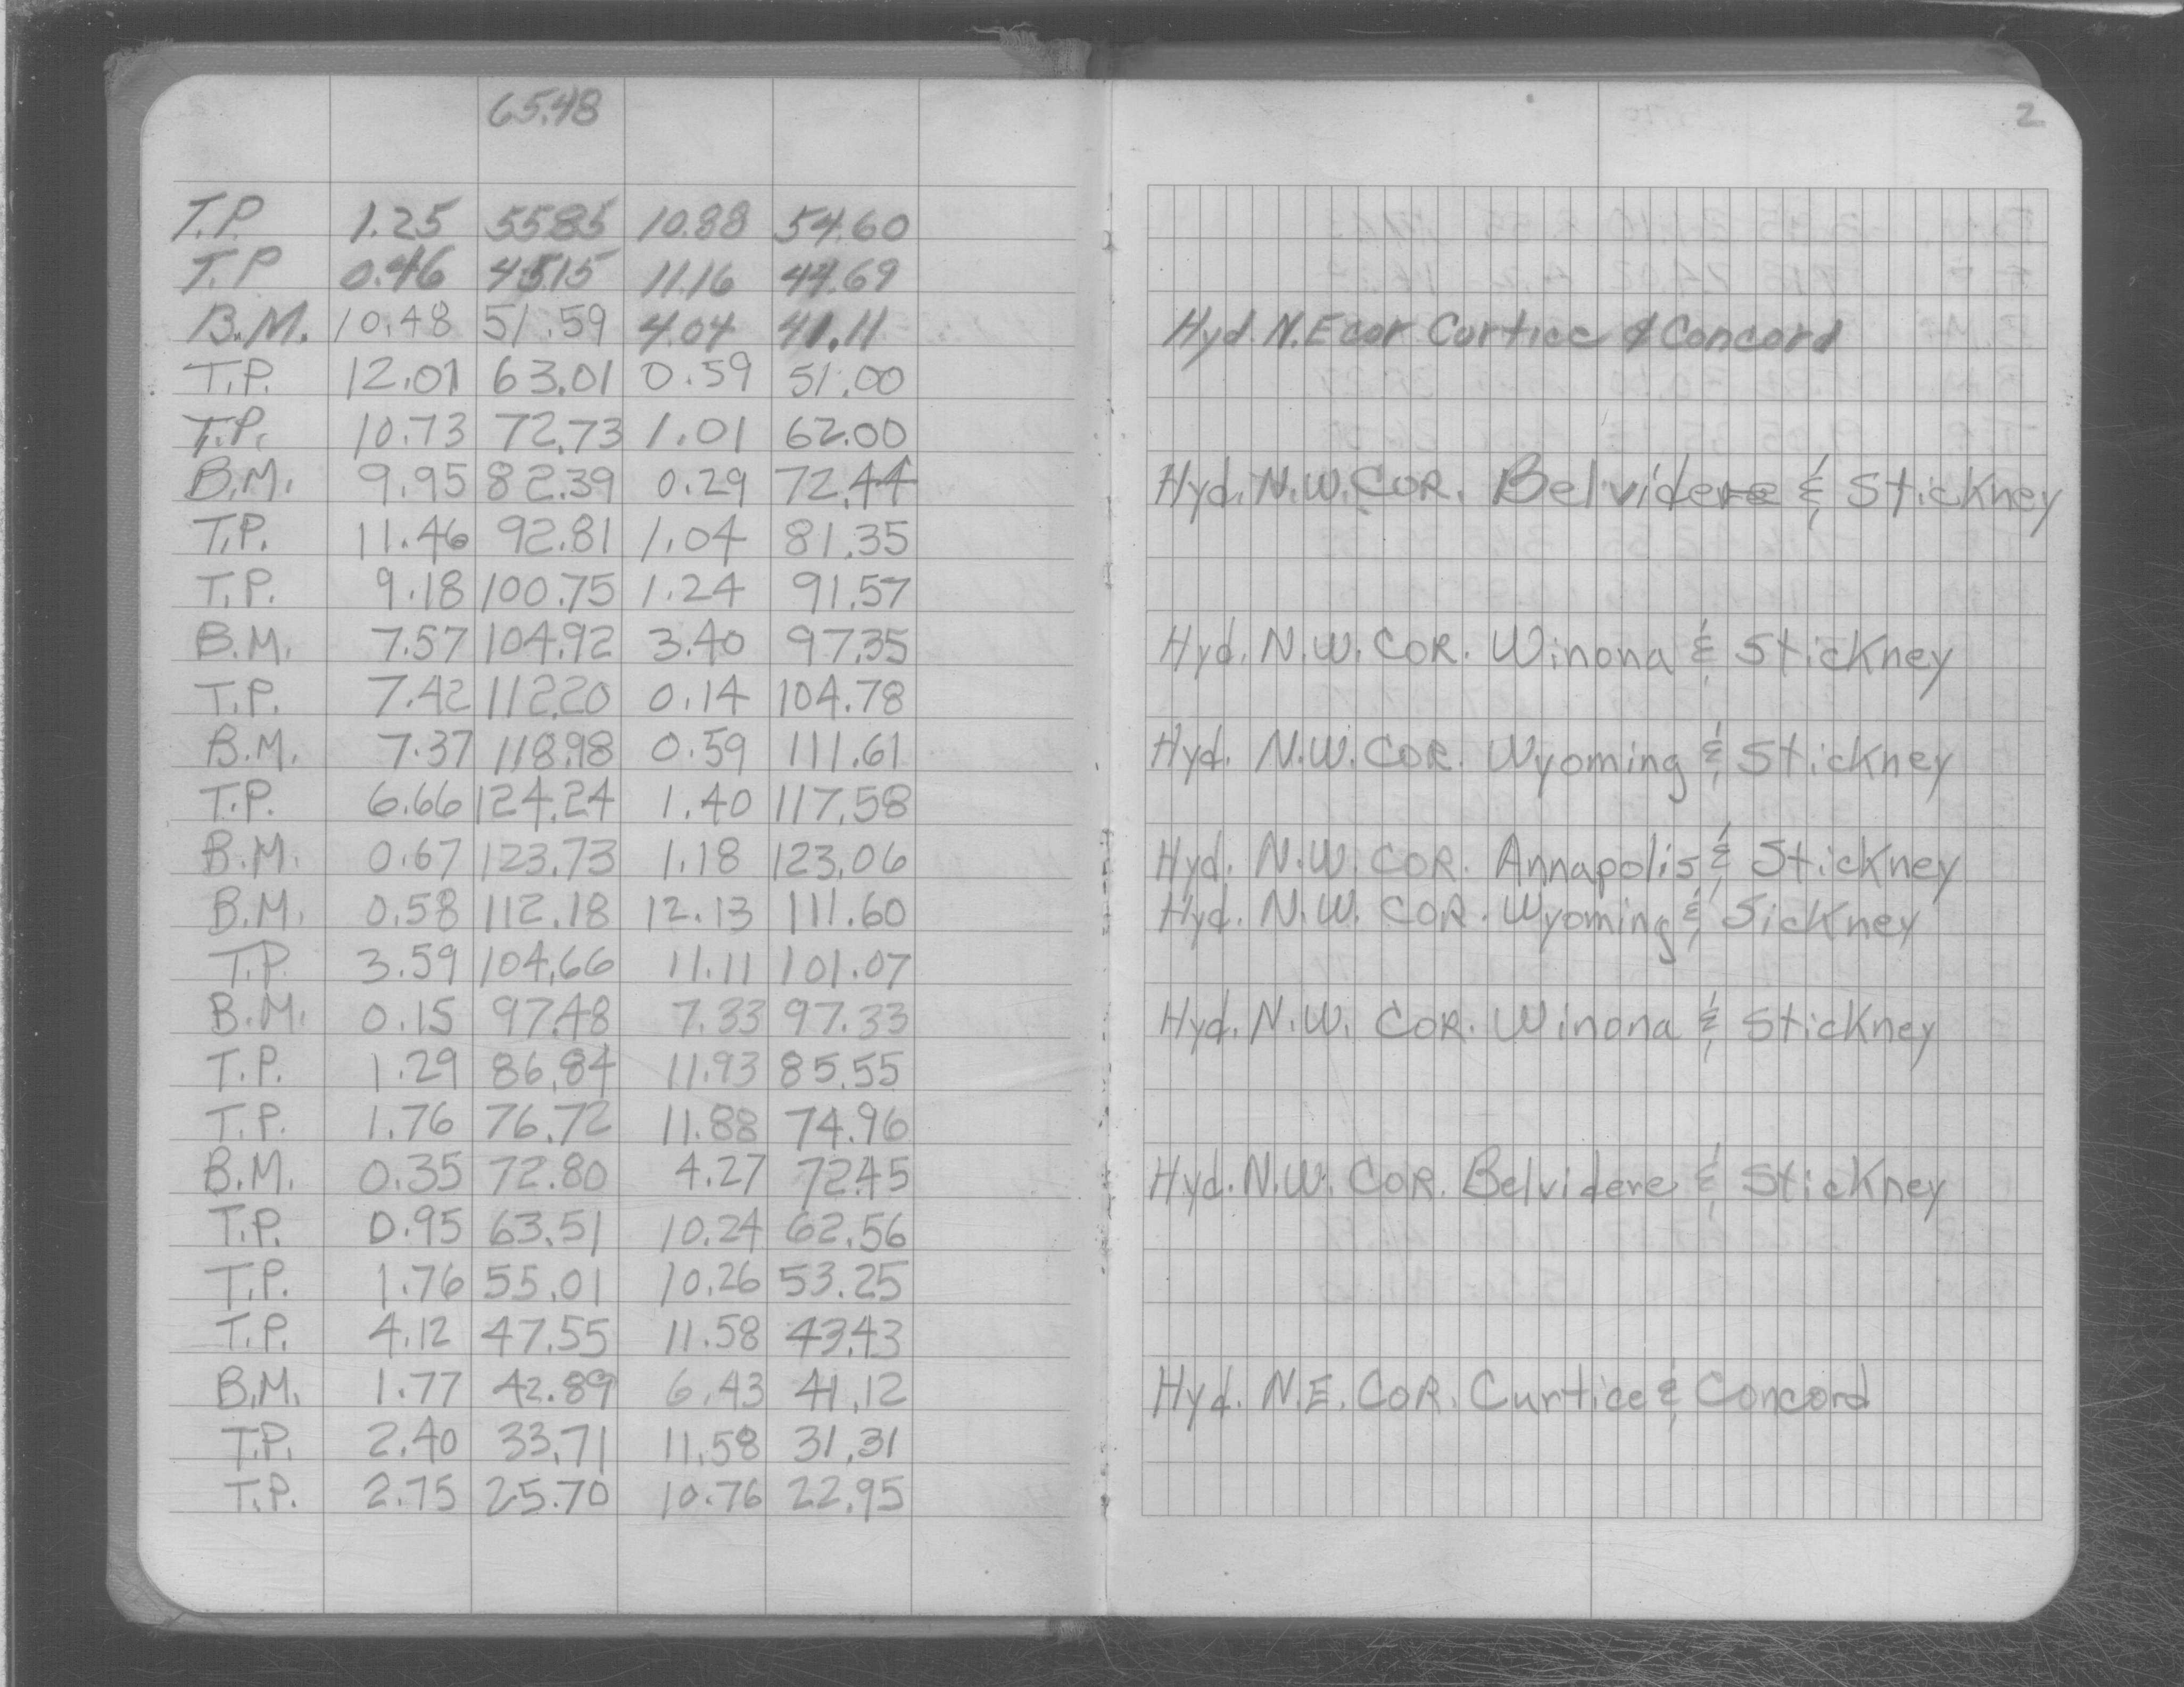 65.48
2
T.P. 1.25 55.85 10.88 54.60
T.P 0.46 45.15 11.16 44.69
B.M. 10.48 51.59 4.04 41.11 Hyd. N.E cor Curtice & Concord
T.P. 12.01 63.01 0.59 51.00
T.P. 10.73 72.73 1.01 62.00
B.M. 9.95 82.39 0.29 72.44 Hyd. N.W. COR. Belvidere & Stickney
T.P. 11.46 92.81 1.04 81.35
T.P. 9.18 100.75 1.24 91.57
B.M. 7.57 104.92 3.40 97.35 Hyd. N.W. COR. Winona & Stickney
T.P. 7.42 112.20 0.14 104.78
B.M. 7.37 118.98 0.59 111.61 Hyd. N.W. COR. Wyoming & Stickney
T.P. 6.66 124.24 1.40 117.58
B.M. 0.67 123.73 1.18 123.06 Hyd. N.W. COR. Annapolis & Stickney
B.M. 0.58 112.18 12.13 111.60 Hyd. N.W. COR. Wyoming & Sickney
T.P. 3.59 104.66 11.11 101.07
B.M. 0.15 97.48 7.33 97.33 Hyd. N.W. COR. Winona & Stickney
T.P. 1.29 86.84 11.93 85.55
T.P. 1.76 76.72 11.88 74.96
B.M. 0.35 72.80 4.27 72.45 Hyd. N.W. COR. Belvidere & Stickney
T.P. 0.95 63.51 10.24 62.56
T.P. 1.76 55.01 10.26 53.25
T.P. 4.12 47.55 11.58 43.43
B.M. 1.77 42.89 6.43 41.12 Hyd. N.E. COR. Curtice & Concord
T.P. 2.40 33.71 11.58 31.31
T.P. 2.75 25.70 10.76 22.95